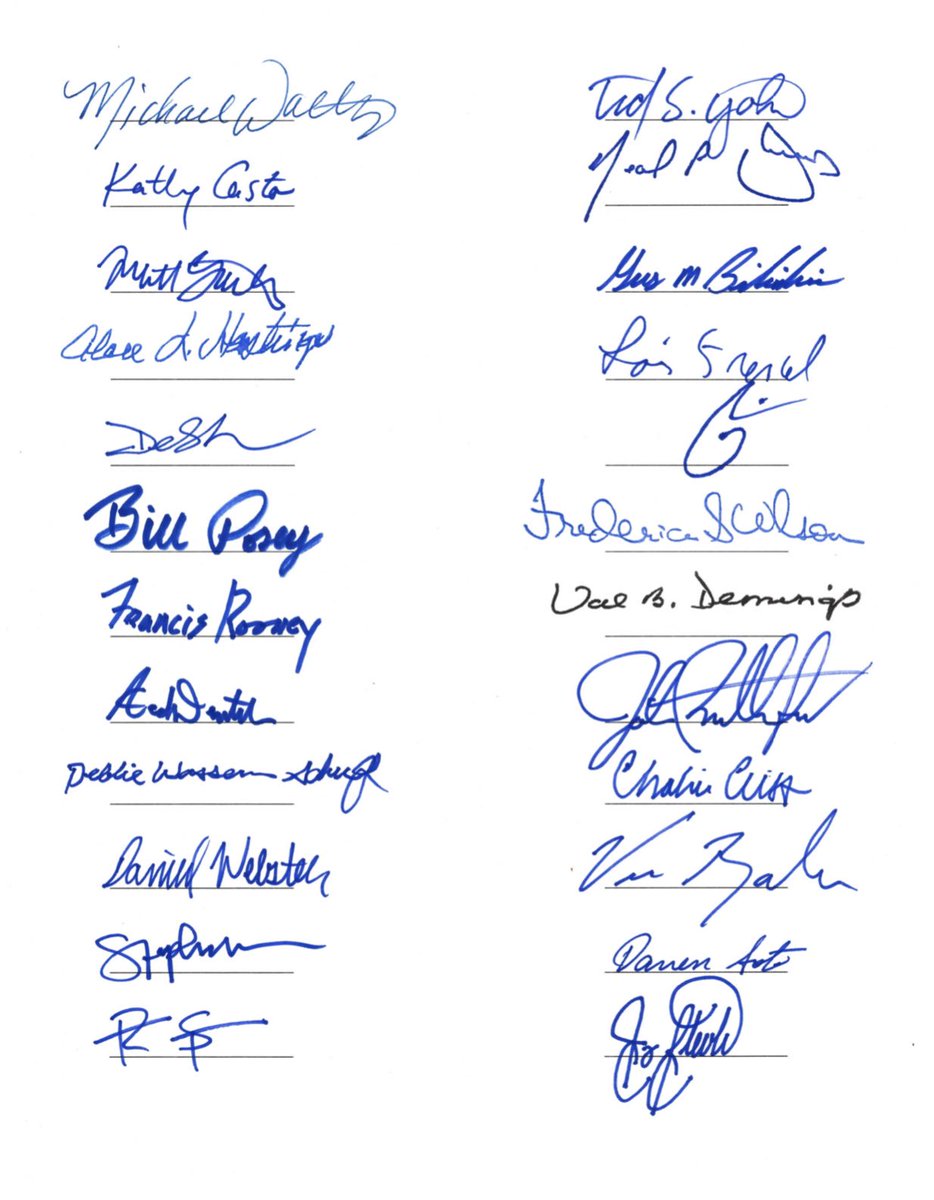 Michael Waltz
Ted S. Yoho
Kathy Castor
Neal P
Matt
Gus M Bilirakis
Alcee L. Hastings
Lois Frankel
Bill Posey
Frederica S Wilson
Francis Rooney
Val B. Demings
Ted Deutch
Debbie Wasserman Schultz
Charlie Crist
Daniel Webster
Vern Buchanan
Darren Soto